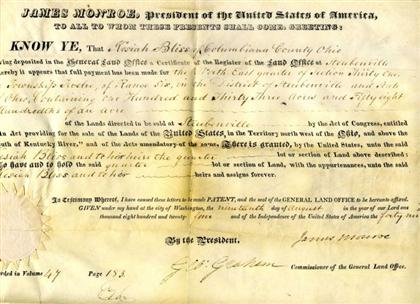 JAMES MONROE, President of the United States of America,
TO ALL TO WHOM THESE PRESENTS SHALL COME, GREETING:
KNOW YE, That Josiah Bliss of Columbiana County Ohio
having deposited in the General Land Office a Certificate of the Register of the Land Office at Steubenville
whereby it appears that full payment has been made for the North East quarter of Section Thirty One
Township Twelve, of Range Six, in the District of Steubenville and State
Ohio, Containing One Hundred and Thirty Three Acres and Fifty eight
Hundredths of an acre
of the Lands directed to be sold at Steubenville by the Act of Congress, entitled
An Act providing for the sale of the Lands of the United States, in the Territory north west of the Ohio, and above the
mouth of Kentucky River," and of the Acts amendatory of the same, There is granted, by the United States, unto the said
Josiah Bliss and to his heirs the quarter lot or section of Land above described:
To have and to hold the said quarter lot or section of Land, with the appurtenances, unto the said
Josiah Bliss and to his heirs and assigns forever.
In Testimony Whereof, I have caused these letters to be made PATENT, and the SEAL of the GENERAL LAND OFFICE to be hereunto affixed.
GIVEN under my hand at the city of Washington, the nineteenth day of August in the year of our Lord one
thousand eight hundred and twenty One and of the Independence of the United States of America the forty
By the President.
James Monroe
Commissioner of the General Land Office.
Recorded in Volume 47 Page 183